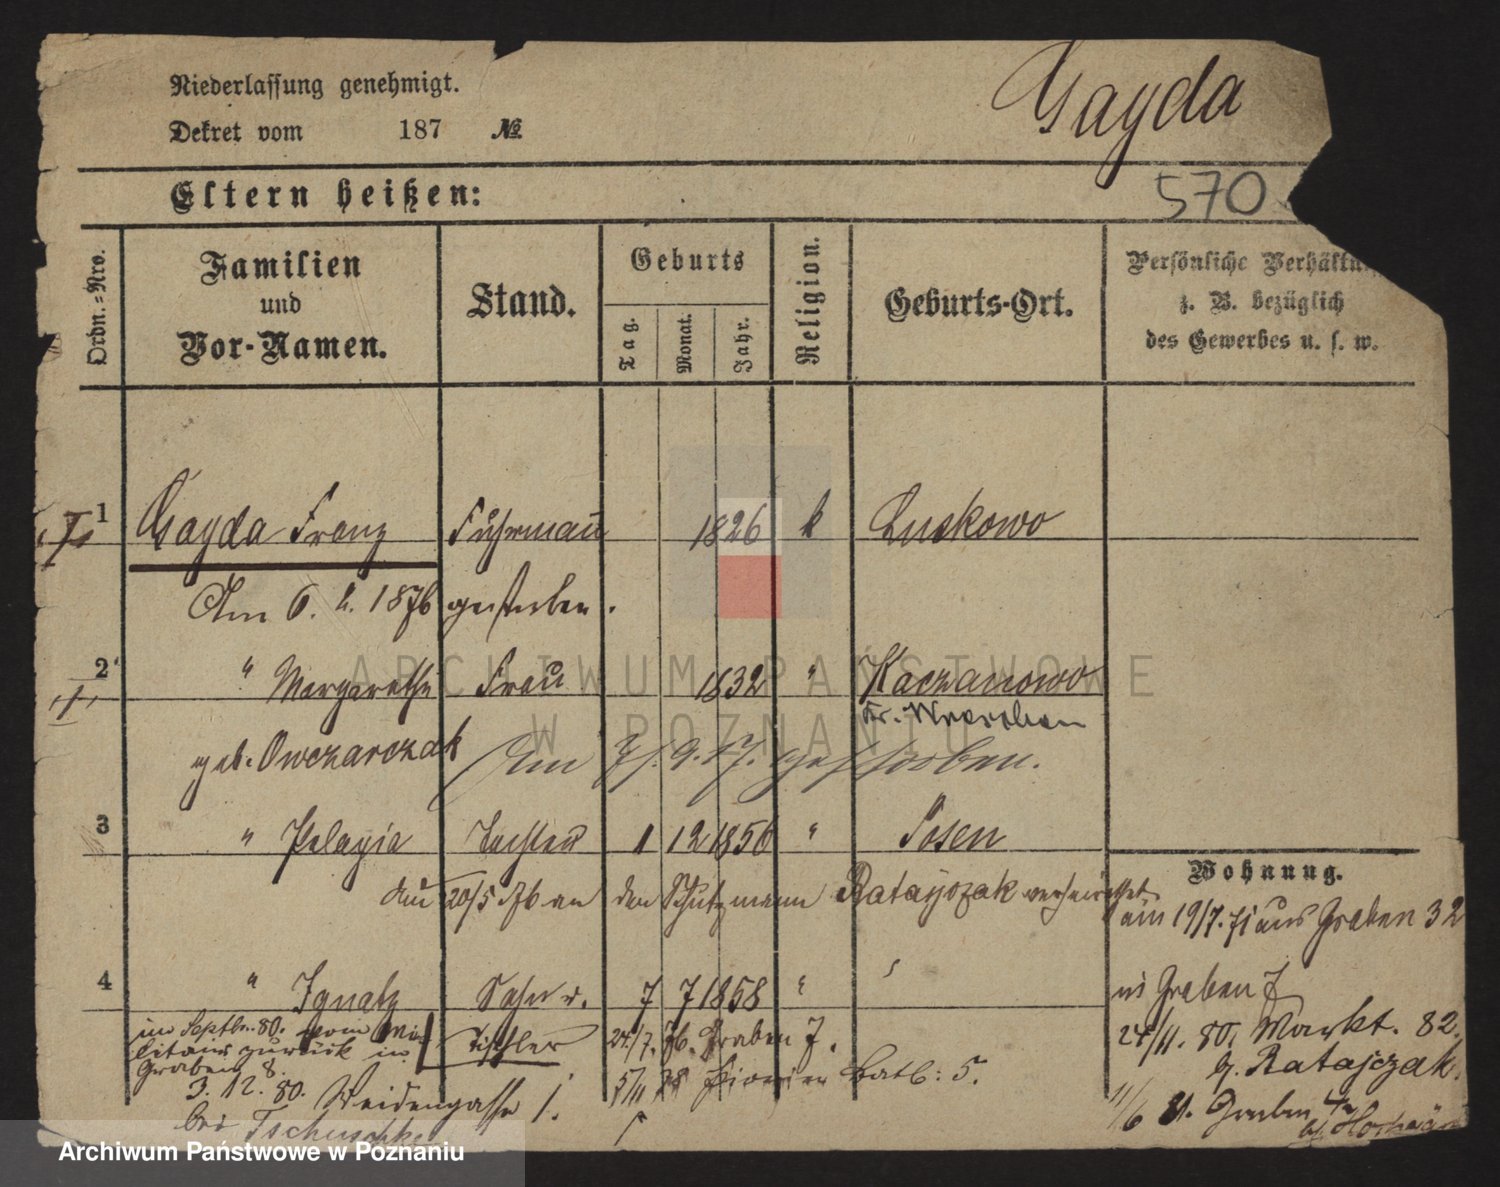 Niederlassung genehmigt.
Dekret vom 187 №
Gayda
570
Eltern heißen:
Ordn.=Nro.
Familien
und
Vor-Namen.
Stand.
Geburts
Tag.
Monat.
Jahr.
Religion.
Geburts-Ort.
Persönliche Verhältn
z. B. bezüglich
des Gewerbes u. s. w.
1 Gayda Franz Fuhrmann 1826 k Luskowo
Am 6. 2. 1876 gestorben.
2 " Margarethe Frau 1832 " Kaczanowo
Kr. Wreschen
geb. Owczarczak Am gestorben.
3 " Pelagia Tochter 1 12 1856 " Posen
Am 20/5 76 an den Schutzmann Ratajczak verheirathet
Wohnung.
am 19/7. 71 aus Graben 32
4 " Ignatz Sohn 7 7 1858 "
in Graben 7
im Septbr. 80. vom Mi-
litair zurück in
Graben 8.
Tischler
24/7. 76. Graben 7.
24/11. 80. Markt. 82.
b. Ratajczak.
5/11 78 Pionier Batl: 5.
3. 12. 80. Weidengasse 1.
bei Tschuschke
11/6 81. Graben
ARCHIWUM PAŃSTWOWE
W POZNANIU
Archiwum Państwowe w Poznaniu